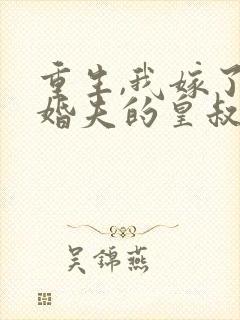 重生,我嫁了
婚夫的皇叔
吴錦燕